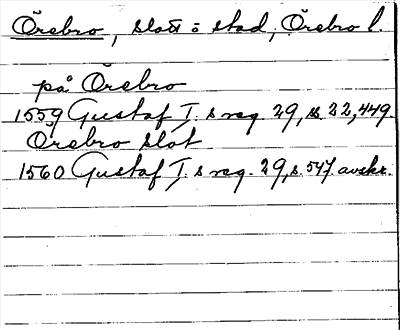 Örebro, slott o stad, Örebro l.
på Örebro
1559 Gustaf I:s reg. 29, s. 22, 449.
Örebro slot
1560 Gustaf I:s reg. 29, s. 547 avskr.